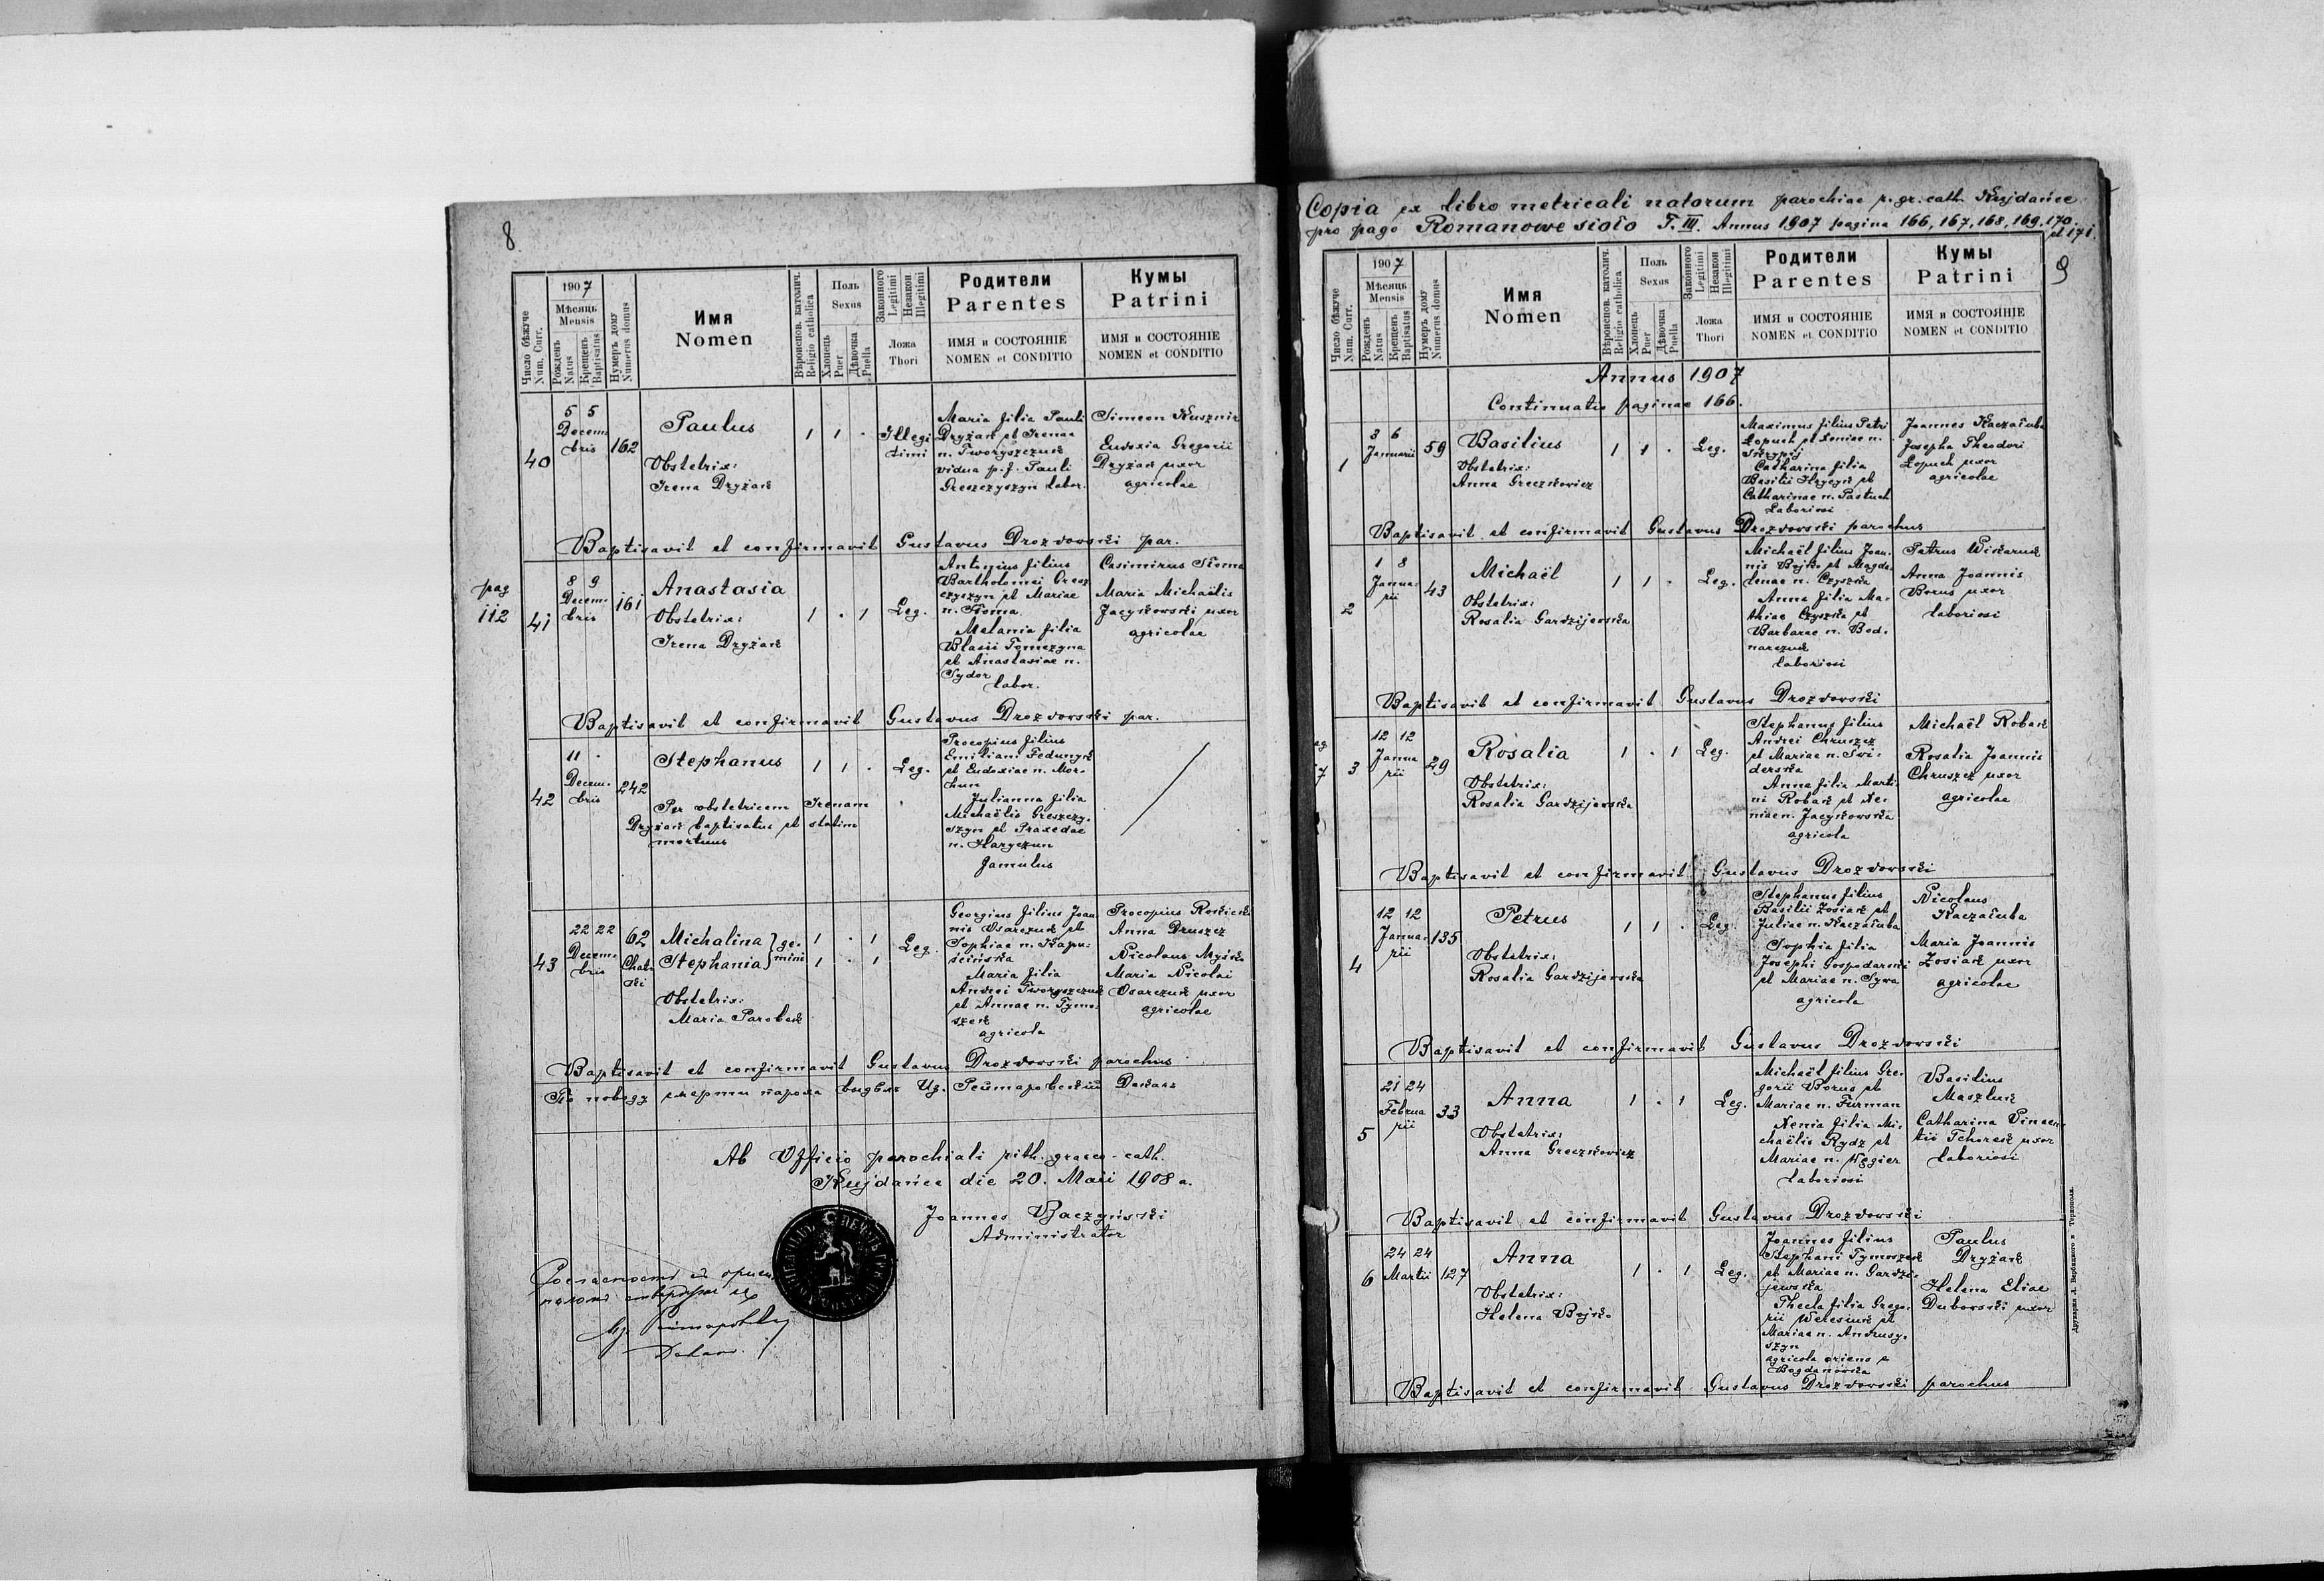 8
Число бѣжуче
Num. Curr.
1907
Мѣсяць
Mensis
Рожденъ
Natus
Крещенъ
Baptisatus
Нумеръ дому
Numerus domus
Имя
Nomen
Вѣроиспов. католич.
Religio catholica
Полъ
Sexus
Хлопець
Puer
Дѣвочка
Puella
Законного
Legitimi
Незакон.
Illegitimi
Ложа
Thori
Родители
Parentes
ИМЯ и СОСТОЯНІЕ
NOMEN et CONDITIO
Кумы
Patrini
ИМЯ и СОСТОЯНІЕ
NOMEN et CONDITIO
40
5 5
Decem-
bris
162
Paulus
Obstetrix:
Irena Dryżak
1 1 .
Illegi
timi
Maria filia Pauli
Dryżak et Irenae
n. Tworyszczuk
vidua p. f. Pauli
Greszczyszyn labor.
Simeon Kusznir
Eudoxia Gregorii
Dryżak uxor
agricolae
Baptisavit et confirmavit Gustavus Drozdowski par.
pag
112
41
8 9
Decem-
bris
161
Anastasia
Obstetrix:
Irena Dryżak
1 . 1
Leg.
Antonius filius
Bartholomei Gresz
czyszyn et Mariae
n. Stoma
Melania filia
Blasii Tomczyna
et Anastasiae n.
Sydor
labor.
Casimirus Stoma
Maria Michaëlis
Jacykowski uxor
agricolae
Baptisavit et confirmavit Gustavus Drozdowski par.
42
11 .
Decem-
bris
242
Stephanus
Per obstetricem Irenam
Dryżak baptisatus et statim
mortuus
1 1 .
Leg.
Procopius filius
Emiliani Fedunyk
et Eudoxiae n. Mor-
hun
Julianna filia
Michaëlis Greszczy-
szyn et Praxedae
n. Haryczun
famulus
43
22 22
Decem-
bris
62
Chatki
Michalina } ge-
Stephania } mini
Obstetrix:
Maria Parobek
1 . 1
1 . 1
Leg.
Georgius filius Joan
nis Osarczuk et
Sophiae n. Kapu-
ścińska
Maria filia
Andrei Tworyszczuk
et Annae n. Tymo-
szek
agricola
Procopius Roskicki
Anna Druszcz
Nicolaus Myśko
Maria Nicolai
Osarczuk uxor
agricolae
Baptisavit et confirmavit Gustavus Drozdowski parochus
По поводу смерти пароха
Ab Officio parochiali rith. graeco-cath.
Kujdańce die 20. Maii 1908 a.
Joannes Baczyński
Administrator
Copia ex libro metricali natorum parochiae r. gr. cath. Kujdańce
pro pago Romanowe sioło T. III. Annus 1907 pagina 166, 167, 168, 169, 170.
et 171.
9
Число бѣжуче
Num. Curr.
1907
Мѣсяць
Mensis
Рожденъ
Natus
Крещенъ
Baptisatus
Нумеръ дому
Numerus domus
Имя
Nomen
Вѣроиспов. католич.
Religio catholica
Полъ
Sexus
Хлопець
Puer
Дѣвочка
Puella
Законного
Legitimi
Незакон
Illegitimi
Ложа
Thori
Родители
Parentes
ИМЯ и СОСТОЯНІЕ
NOMEN et CONDITIO
Кумы
Patrini
ИМЯ и СОСТОЯНІЕ
NOMEN et CONDITIO
Annus 1907
Continuatio paginae 166.
1
3 6
Januarii
59
Basilius
Obstetrix:
Anna Greczkowicz
1 1 .
Leg.
Maximus filius Petri
Łopuch et Xeniae n.
Skrypij
Catharina filia
Basilii Hrycyk et
Catharinae n. Pastuch
Laboriosi
Joannes Kaczałuba
Josepha Theodori
Łopuch uxor
agricolae
Baptisavit et confirmavit Gustavus Drozdowski parochus
2
1 8
Janua-
rii
43
Michaël
Obstetrix:
Rosalia Gardzijewska
1 1 .
Leg.
Michaël filius Joan-
nis Bojko et Magda-
lenae n. Czyszka
Anna filia Ma-
thiae Czyszka et
Barbarae n. Bod-
narczuk
laboriosi
Petrus Wikaruk
Anna Joannis
Borus uxor
laboriosi
Baptisavit et confirmavit Gustavus Drozdowski
3
12 12
Janua
rii
29
Rosalia
Obstetrix:
Rosalia Gardzijewska
1 . 1
Leg.
Stephanus filius
Andrei Chruszcz
et Mariae n. Świ-
derska
Anna filia Marti-
ni Robak et Xe-
niae n. Jacykowska
agricola
Michaël Robak
Rosalia Joannis
Chruszcz uxor
agricolae
Baptisavit et confirmavit Gustavus Drozdowski
4
12 12
Janua-
rii
135
Petrus
Obstetrix:
Rosalia Gardzijewska
1 1 .
Leg.
Stephanus filius
Basilii Zosiak et
Juliae n. Kaczałuba
Sophia filia
Josephi Gospodarski
et Mariae n. Sywa
agricola
Nicolaus
Kaczałuba
Maria Joannis
Zosiak uxor
agricolae
Baptisavit et confirmavit Gustavus Drozdowski
5
21 24
Februa
rii
33
Anna
Obstetrix:
Anna Greczkowicz
1 . 1
Leg.
Michaël filius Gre-
gorii Borus et
Mariae n. Furman
Xenia filia Mi-
chaëlis Rydz et
Mariae n. Węgier
Laboriosi
Basilius
Maszluk
Catharina Vincen-
tii Tchorek uxor
Laboriosi
Baptisavit et confirmavit Gustavus Drozdowski
6
24 24
Martii
127
Anna
Obstetrix:
Helena Bojko
1 . 1
Leg.
Joannes filius
Stephani Tymoszek
et Mariae n. Gardzi-
jewska
Thecla filia Grego-
rii Welesiuk et
Mariae n. Andrusy-
szyn
agricola oriens e
Bogdanówka
Paulus
Dryżak
Helena Eliae
Dubowski uxor
Baptisavit et confirmavit Gustavus Drozdowski parochus
Друкарня Л. Вербицкого в Тернополи.